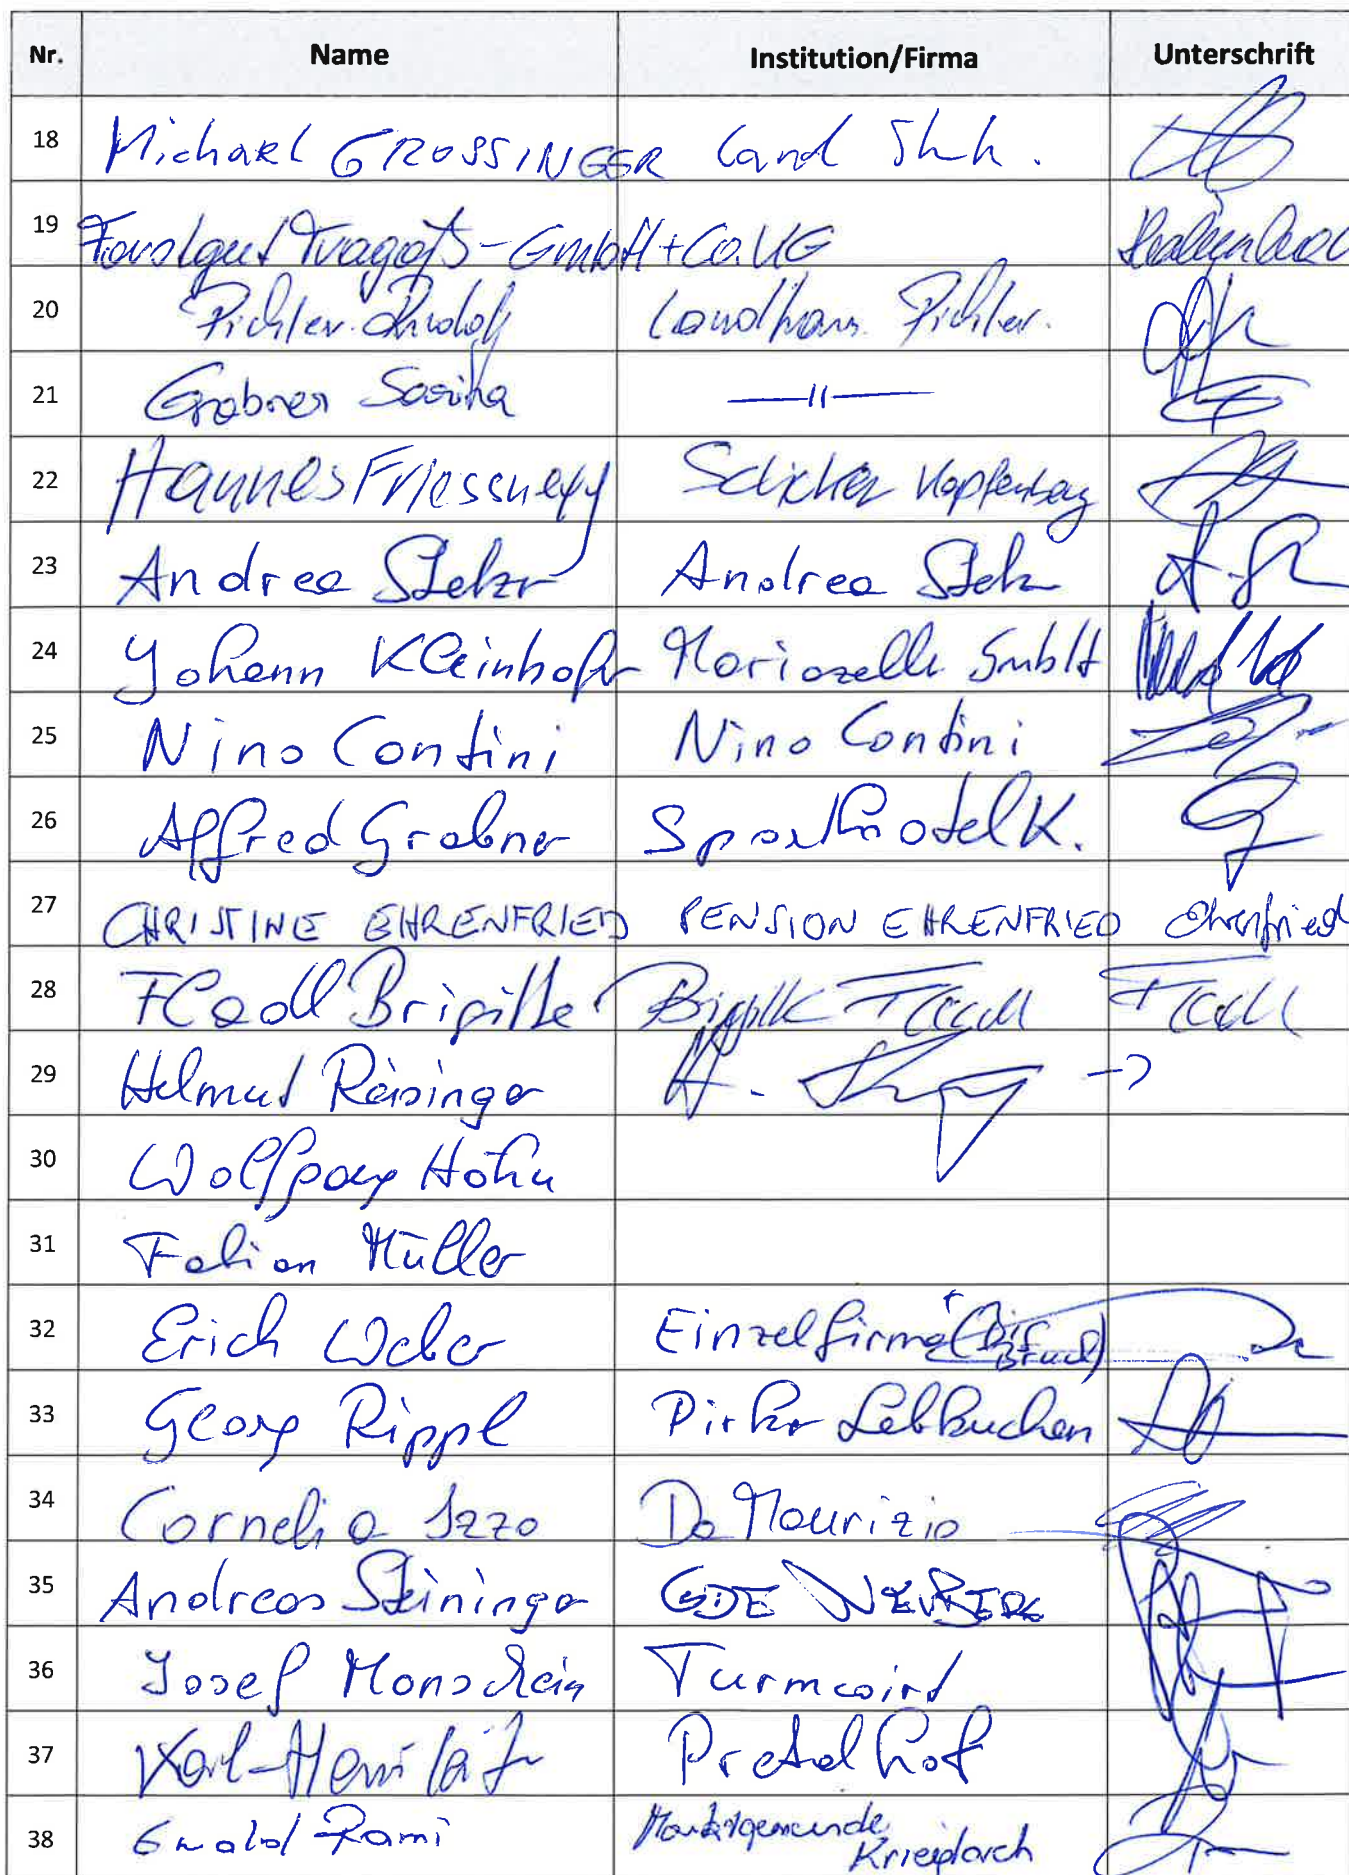 Nr. Name Institution/Firma Unterschrift
18 Michael GROSSINGER Land Stmk.
19 Forstgut Tragöß-GmbH+Co.KG
20 Pichler Rudolf Landhaus Pichler.
21 Grabner Sarina —11—
22 Hannes Friessnegg Schicker Kapfenberg
23 Andrea Stelzr Andrea Stelz
24 Johann Kleinhofr Mariazelle GmbH
25 Nino Contini Nino Contini
26 Alfred Grabner Sporthotel K.
27 CHRISTINE EHRENFRIED PENSION EHRENFRIED Ehrenfried
28 Fladl Brigitte Brigitte Fladl Fladl
29 Helmut Reisinger H. ->
30 Wolfgang Höhn
31 Fabian Müller
32 Erich Weber Einzelfirma
Bruck)
33 Georg Rippl Pirker Lebkuchen
34 Cornelia Izzo Da Maurizio
35 Andreas Steininger GDE NEUBERG
36 Josef Monschein Turmwirt
37 Karl-Heinz Pretalhof
38 Ewald Rami Marktgemeinde
Krieglach